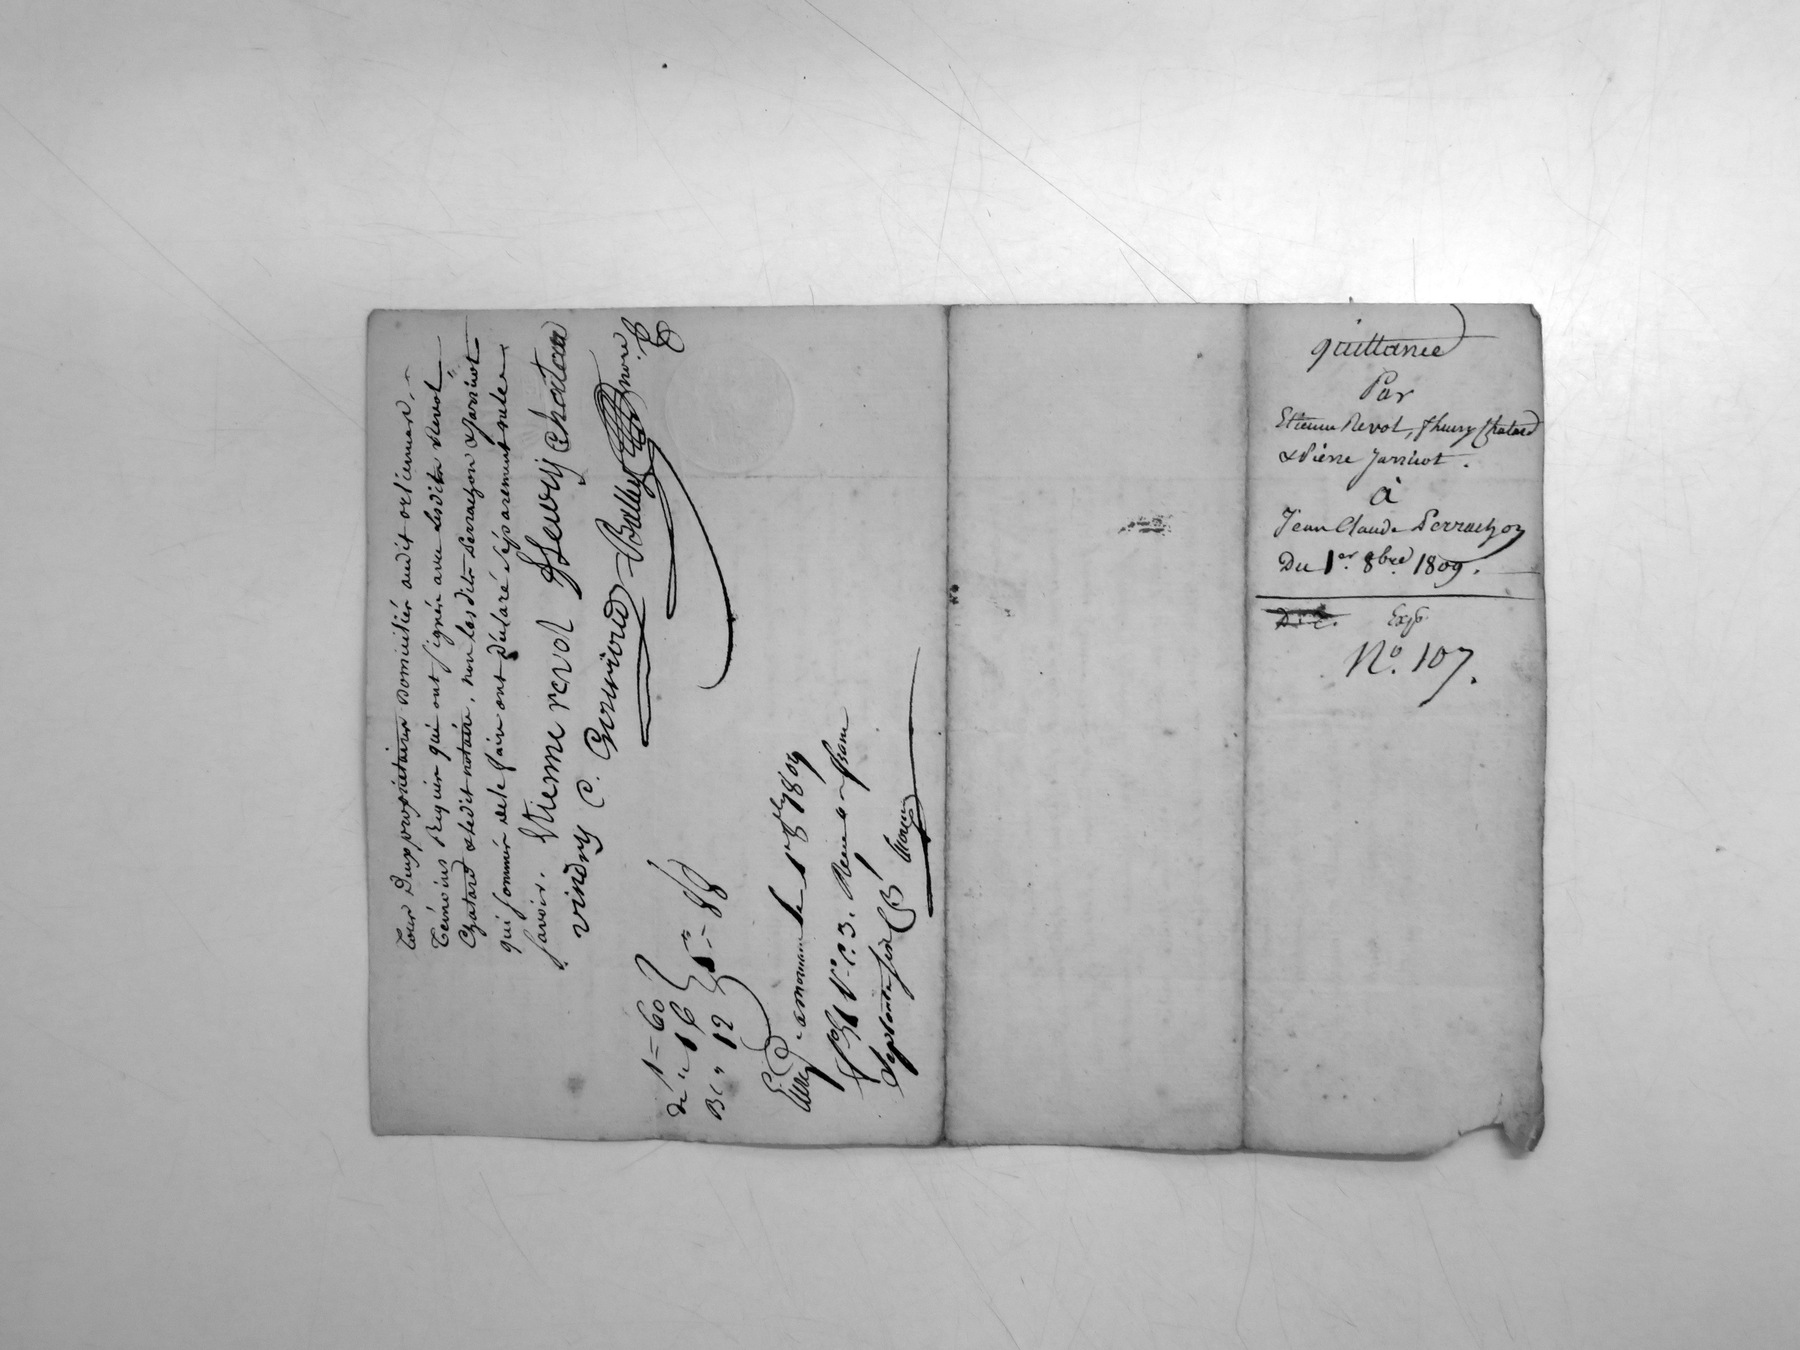 tous deux propriétaires domiciliés audit orliennas,
témoins Requis qui ont signés avec lesdits Revol
Chatard & ledit notaire, non lesdits Perrachon & Jarricot
qui sommés de le faire ont déclaré séparement ne le
savoir.
Etienne revol fleury chatard
vindry C. Gouvioud Balley noire
dé 1 = 60
de " 16
Bt " 12
Enreg à mornant le 8bre 1809
f° 36 V° C. 3. Reçu un franc
Septante six
quittance
Par
Etienne Revol, fleury Chatard
& Pierre Jarricot.
à
Jean Claude Perrachon
Du 1er. 8bre 1809.
Exp
No. 107.